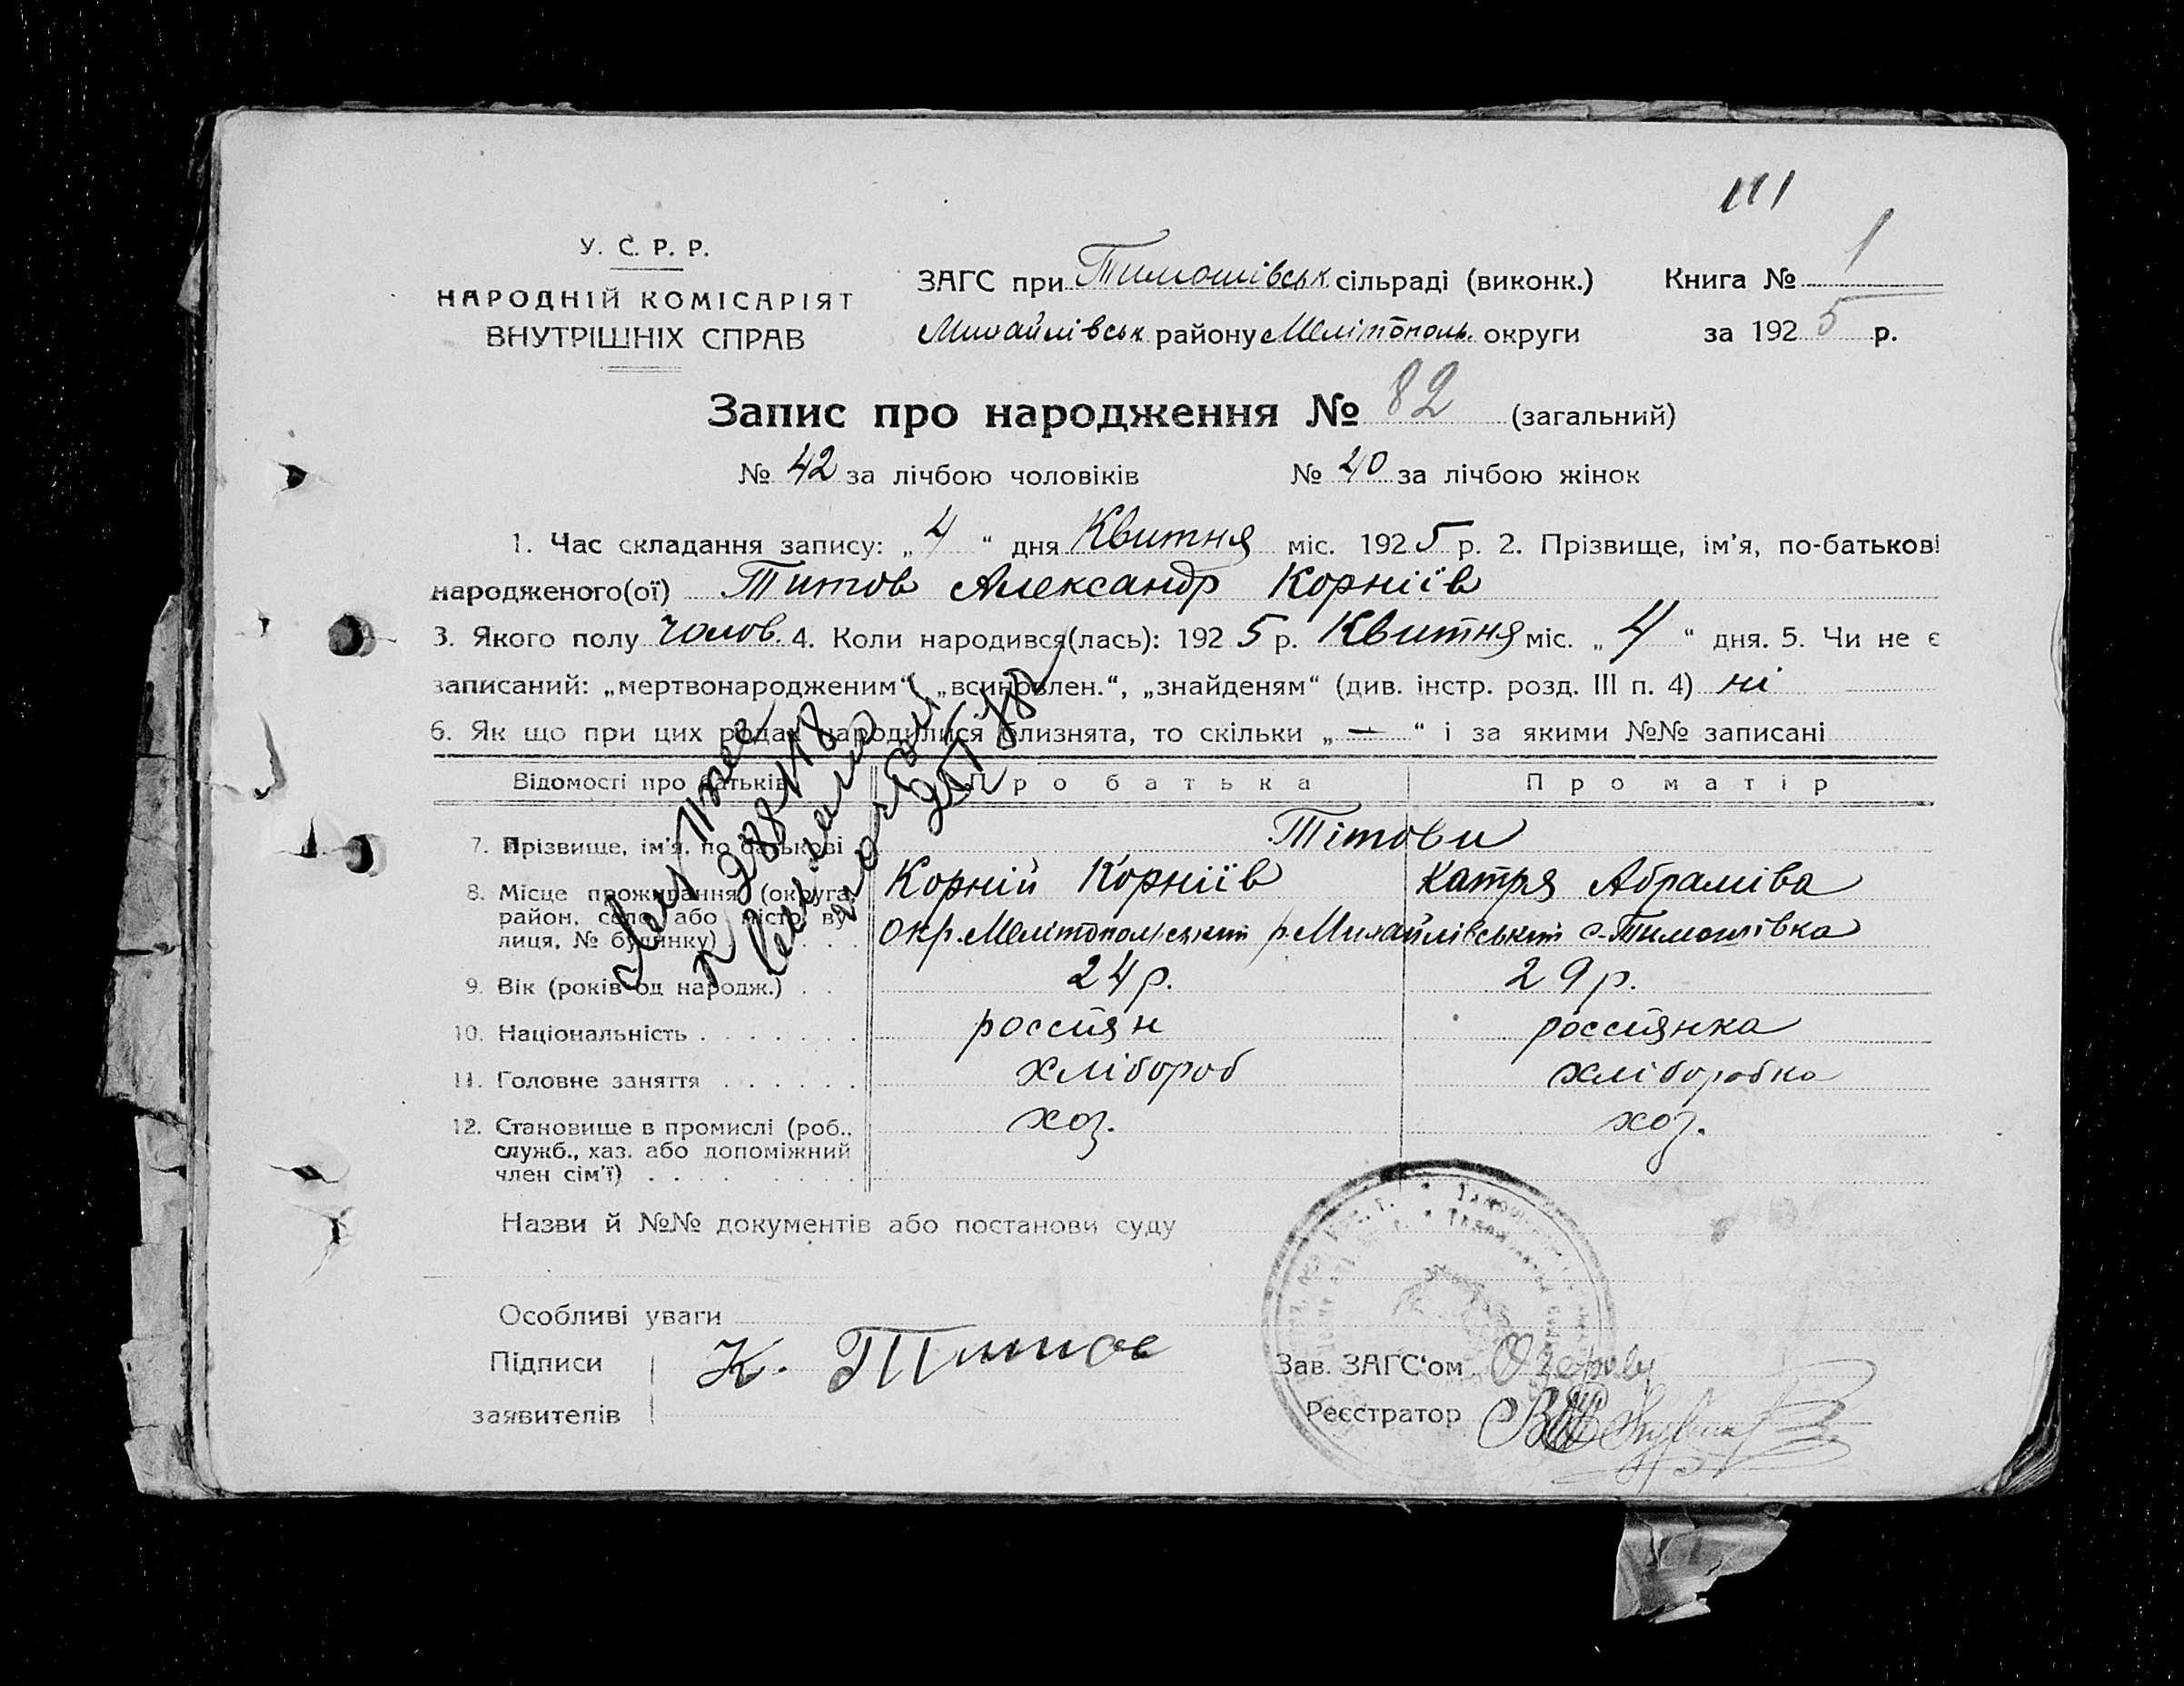 111
У. С. Р. Р.
НАРОДНІЙ КОМІСАРІЯТ
ВНУТРІШНІХ СПРАВ
ЗАГС при Тимошівськ. сільраді (виконк.)
Михайлівськ району Мелітополь. округи
Книга № 1
за 1925 р.
Запис про народження № 82 (загальний)
№ 42 за лічбою чоловіків № 40 за лічбою жінок
1. Час складання запису: „4“ дня Квитня міс. 1925 р. 2. Прізвище, ім’я, по-батькові
народженого(ої) Титов Александр Корніїв
3. Якого полу чолов. 4. Коли народився(лась): 1925 р. Квитня міс. „4“ дня. 5. Чи не є
записаний: „мертвонародженим“, „всиновлен.“, „знайденям“ (див. інстр. розд. III п. 4) ні
6. Як що при цих родах народилися близнята, то скільки „—“ і за якими №№ записані
Відомості про батьків Про батька Про матір
7. Прізвище, ім’я, по батькові Тітови
Корній Корніїв Катря Абраміва
8. Місце проживання (округа,
район, село або місто, ву-
лиця, № будинку) окр. Мелітопольський р. Михайлівський с. Тимошівка
9. Вік (років од народж.) . . 24 р. 29 р.
10. Національність . . . . . . . россіян россіянка
11. Головне заняття . . . . . . хлібороб хліборобка
12. Становище в промислі (роб.,
служб., хаз. або допоміжний
член сім’ї) . . . . . . . . хоз. хоз.
Назви й №№ документів або постанови суду
Особливі уваги
Підписи
заявителів
К. Титов
Зав. ЗАГС‘ом
Реєстратор